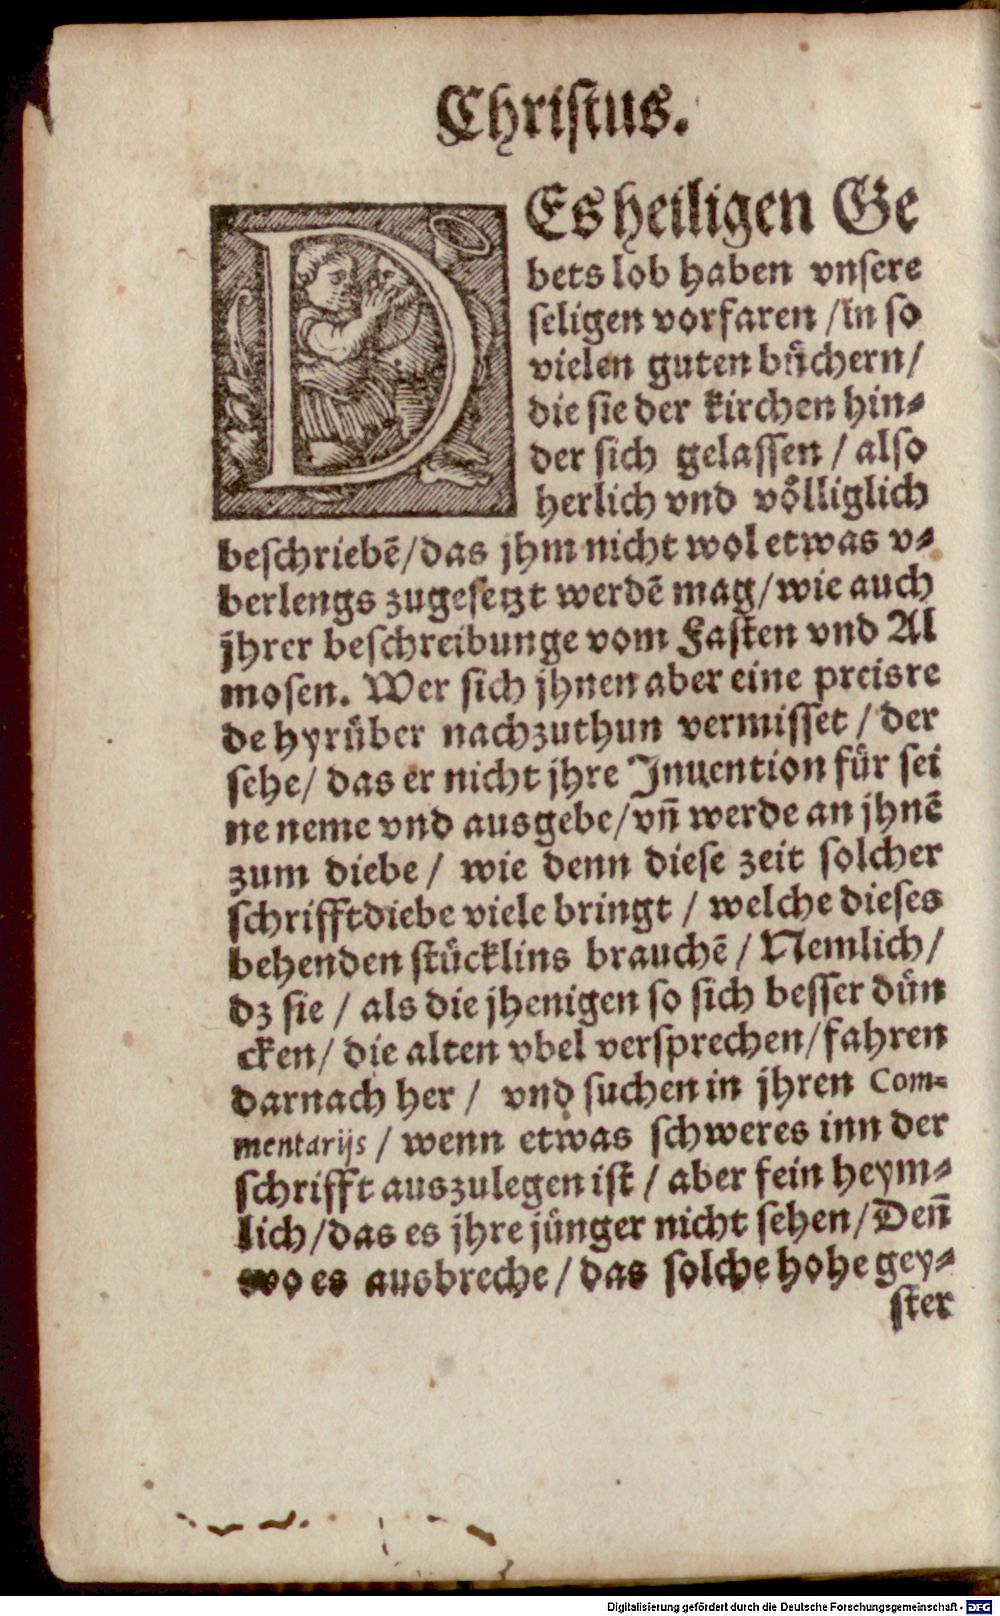 Christus.
DEs heiligen Ge
bets lob haben vnsere
seligen vorfaren /in so
vielen guten bůchern/
die sie der kirchen hin⸗
der sich gelassen / also
herlich vnd vǒlliglich
beschriebẽ/das jhm nicht wol etwas v⸗
berlengs zugesetzt werdẽ mag/wie auch
jhrer beschreibunge vom Fasten vnd Al
mosen. Wer sich jhnen aber eine preisre
de hyrůber nachzuthun vermisset / der
sehe/ das er nicht jhre Inuention fůr sei
ne neme vnd ausgebe/vñ werde an jhnẽ
zum diebe / wie denn diese zeit solcher
schrifftdiebe viele bringt / welche dieses
behenden stůcklins brauchẽ / Nemlich/
dz sie / als die jhenigen so sich besser důn
cken/ die alten vbel versprechen/fahren
darnach her / vnd suchen in jhren Com⸗
mentarijs / wenn etwas schweres inn der
schrifft auszulegen ist / aber fein heym⸗
lich/das es jhre jůnger nicht sehen/Deñ
wo es ausbreche / das solche hohe gey⸗
ster
Digitalisierung gefördert durch die Deutsche Forschungsgemeinschaft - DFG